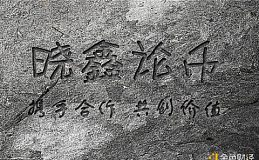 晓鑫论币
携手合作 共创价值
金色财经